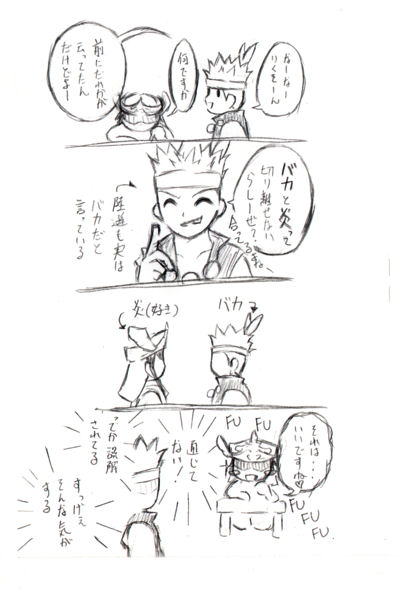 なーなー
りくそーん
何ですか
前にだれかが
云ってたん
だけどよー
バカと炎って
切り離せない
らしーぜ？
合ってるよね
陸遜も実は
バカだと
言っている
バカ
炎(好き)
それは・・・
いいですね
FU
FU
FU
FU
FU
通じて
ない！
てか誤解
されてる
すっげぇ
そんな気が
する